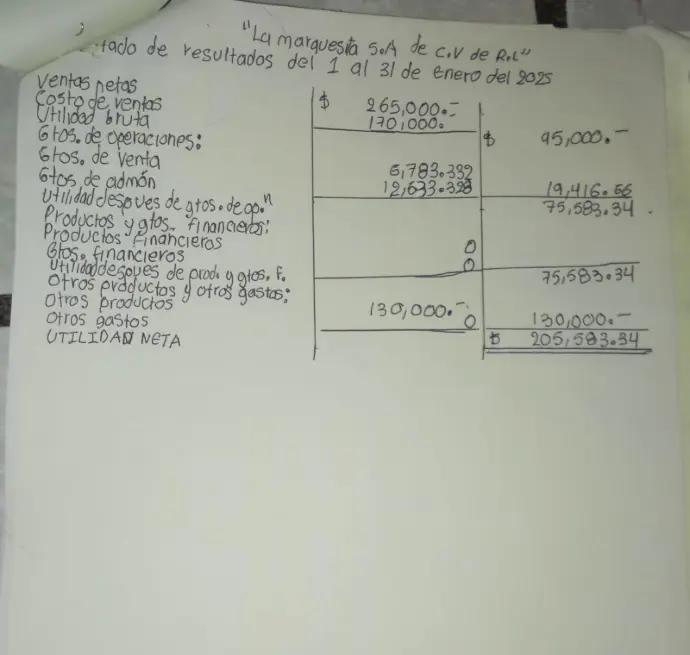 "La marquesita S.A de C.V de R.L"
tado de resultados del 1 al 31 de enero del 2025
Ventas netas $ 265,000.-
Costo de ventas 170,000.
Utilidad bruta $ 95,000.-
Gtos. de operaciones:
Gtos. de venta 6,783.332
Gtos de admón 12,633.328 19,416.66
Utilidad despues de gtos. de op." 75,583.34
Productos y gtos. financieros:
Productos financieros 0
Gtos. financieros 0
Utilidad despues de prod. y gtos. f. 75,583.34
Otros productos y otros gastos:
Otros productos 130,000.-
Otros gastos 0 130,000.-
UTILIDAD NETA $ 205,583.34